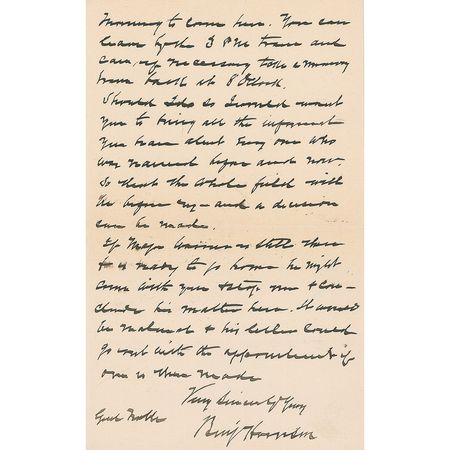 morning to come here. You can
leave by the 3 PM train and
can, if necessary take a morning
train back at 8 O'clock.
Should I do so I would want
you to bring all the information
you have about every one who
was named before and now.
So that the whole field will
be before us – and a decision
can be made.
If Major is still there
& is ready to go home he might
come with you & stop over & con-
clude his matter here. It would
be natural & his letter could
go out with the appointment if
one is then made
Very Sincerely Yours
Genl Noble Benj Harrison